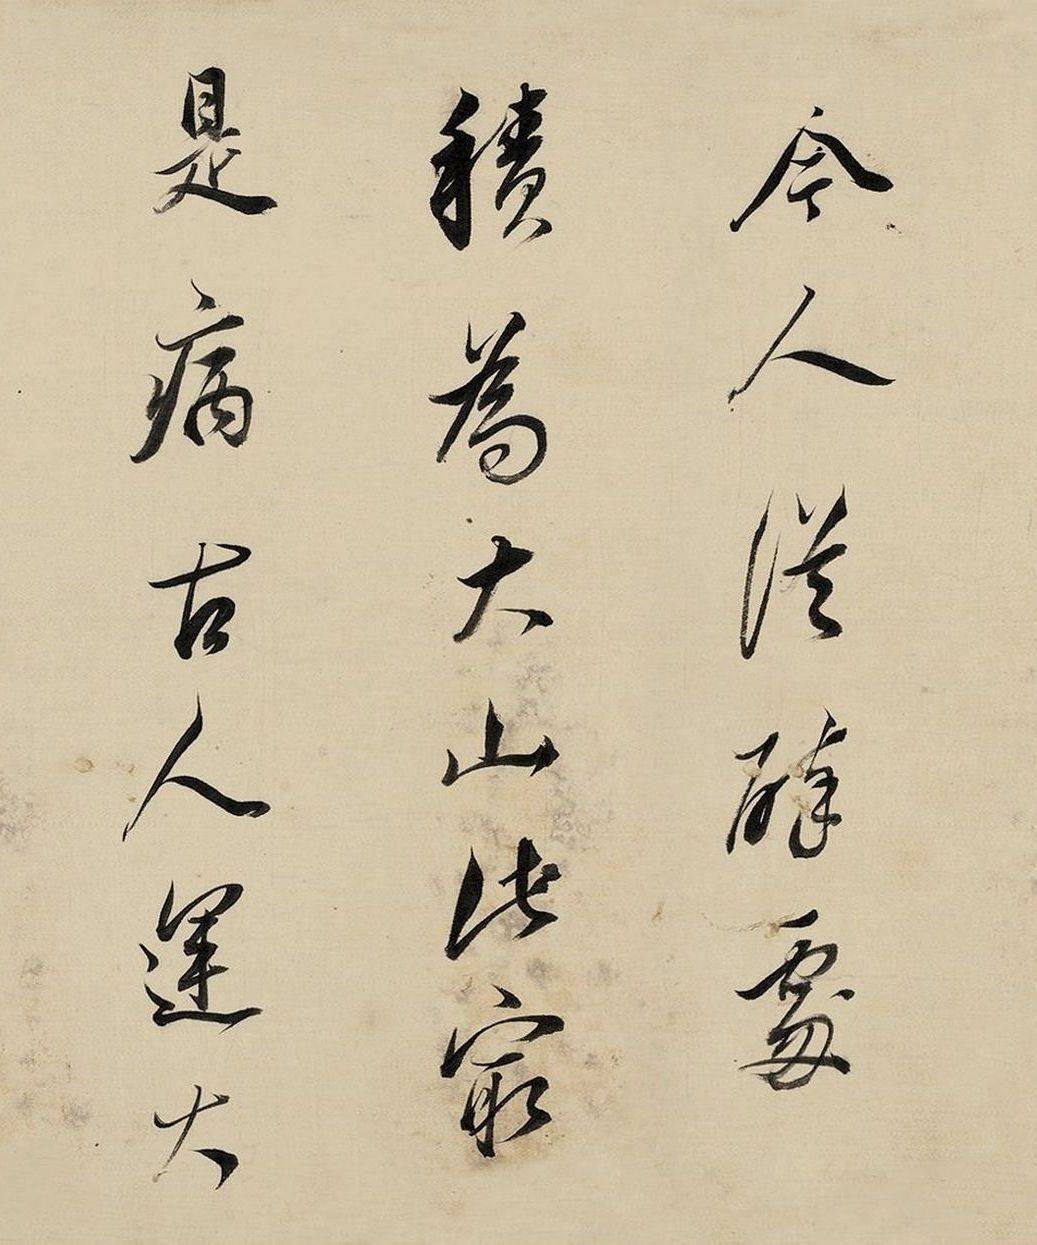 今人從碎處
積為大山此最
是病古人運大